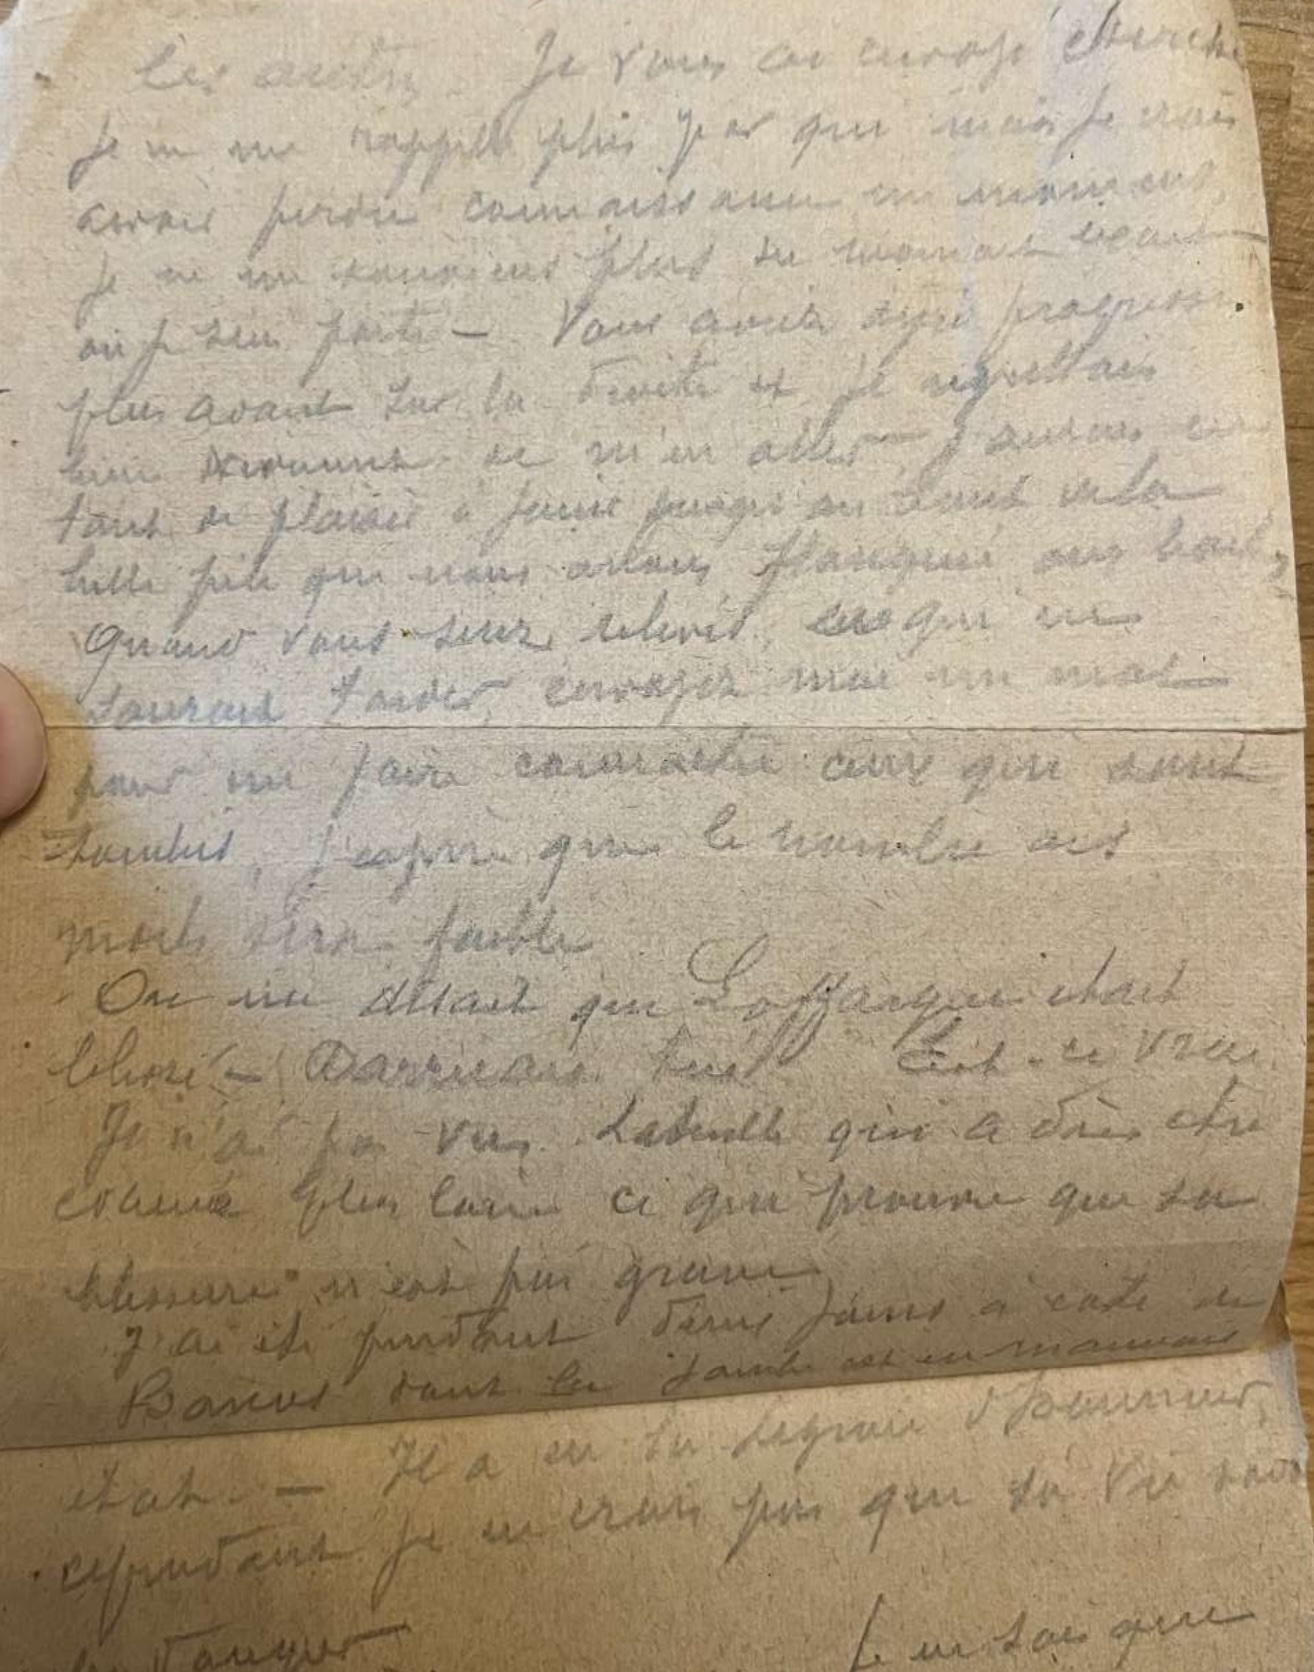 les autres. Je vous ai envoyé chercher
Je ne me rappelle plus par qui mais je crois
avoir perdu connaissance un moment,
Je ne me souviens plus du moment exact
où je suis parti — Vous aviez déjà progressé
plus avant sur la droite et je regrettais
bien de m'en aller — J'aurais eu
tant de plaisir à jouir jusqu'au bout de la
belle pile que nous avons flanquée aux boches
Quand vous serez relevés, ce qui ne
saurait tarder, envoyez moi un mot
pour me faire connaître ceux qui sont
tombés, j'espère que le nombre des
morts sera faible
On me disait que Laffargue était
blessé — tué Est-ce vrai
Je n'ai pas vu qui a dû être
évacué plus loin ce qui prouve que sa
blessure n'est pas grave
J'ai été pendant deux jours à côté de
dont la jambe est en mauvais
état. — Il a eu la légion d'honneur,
cependant je ne crois pas que sa vie soit
en danger Je ne sais que